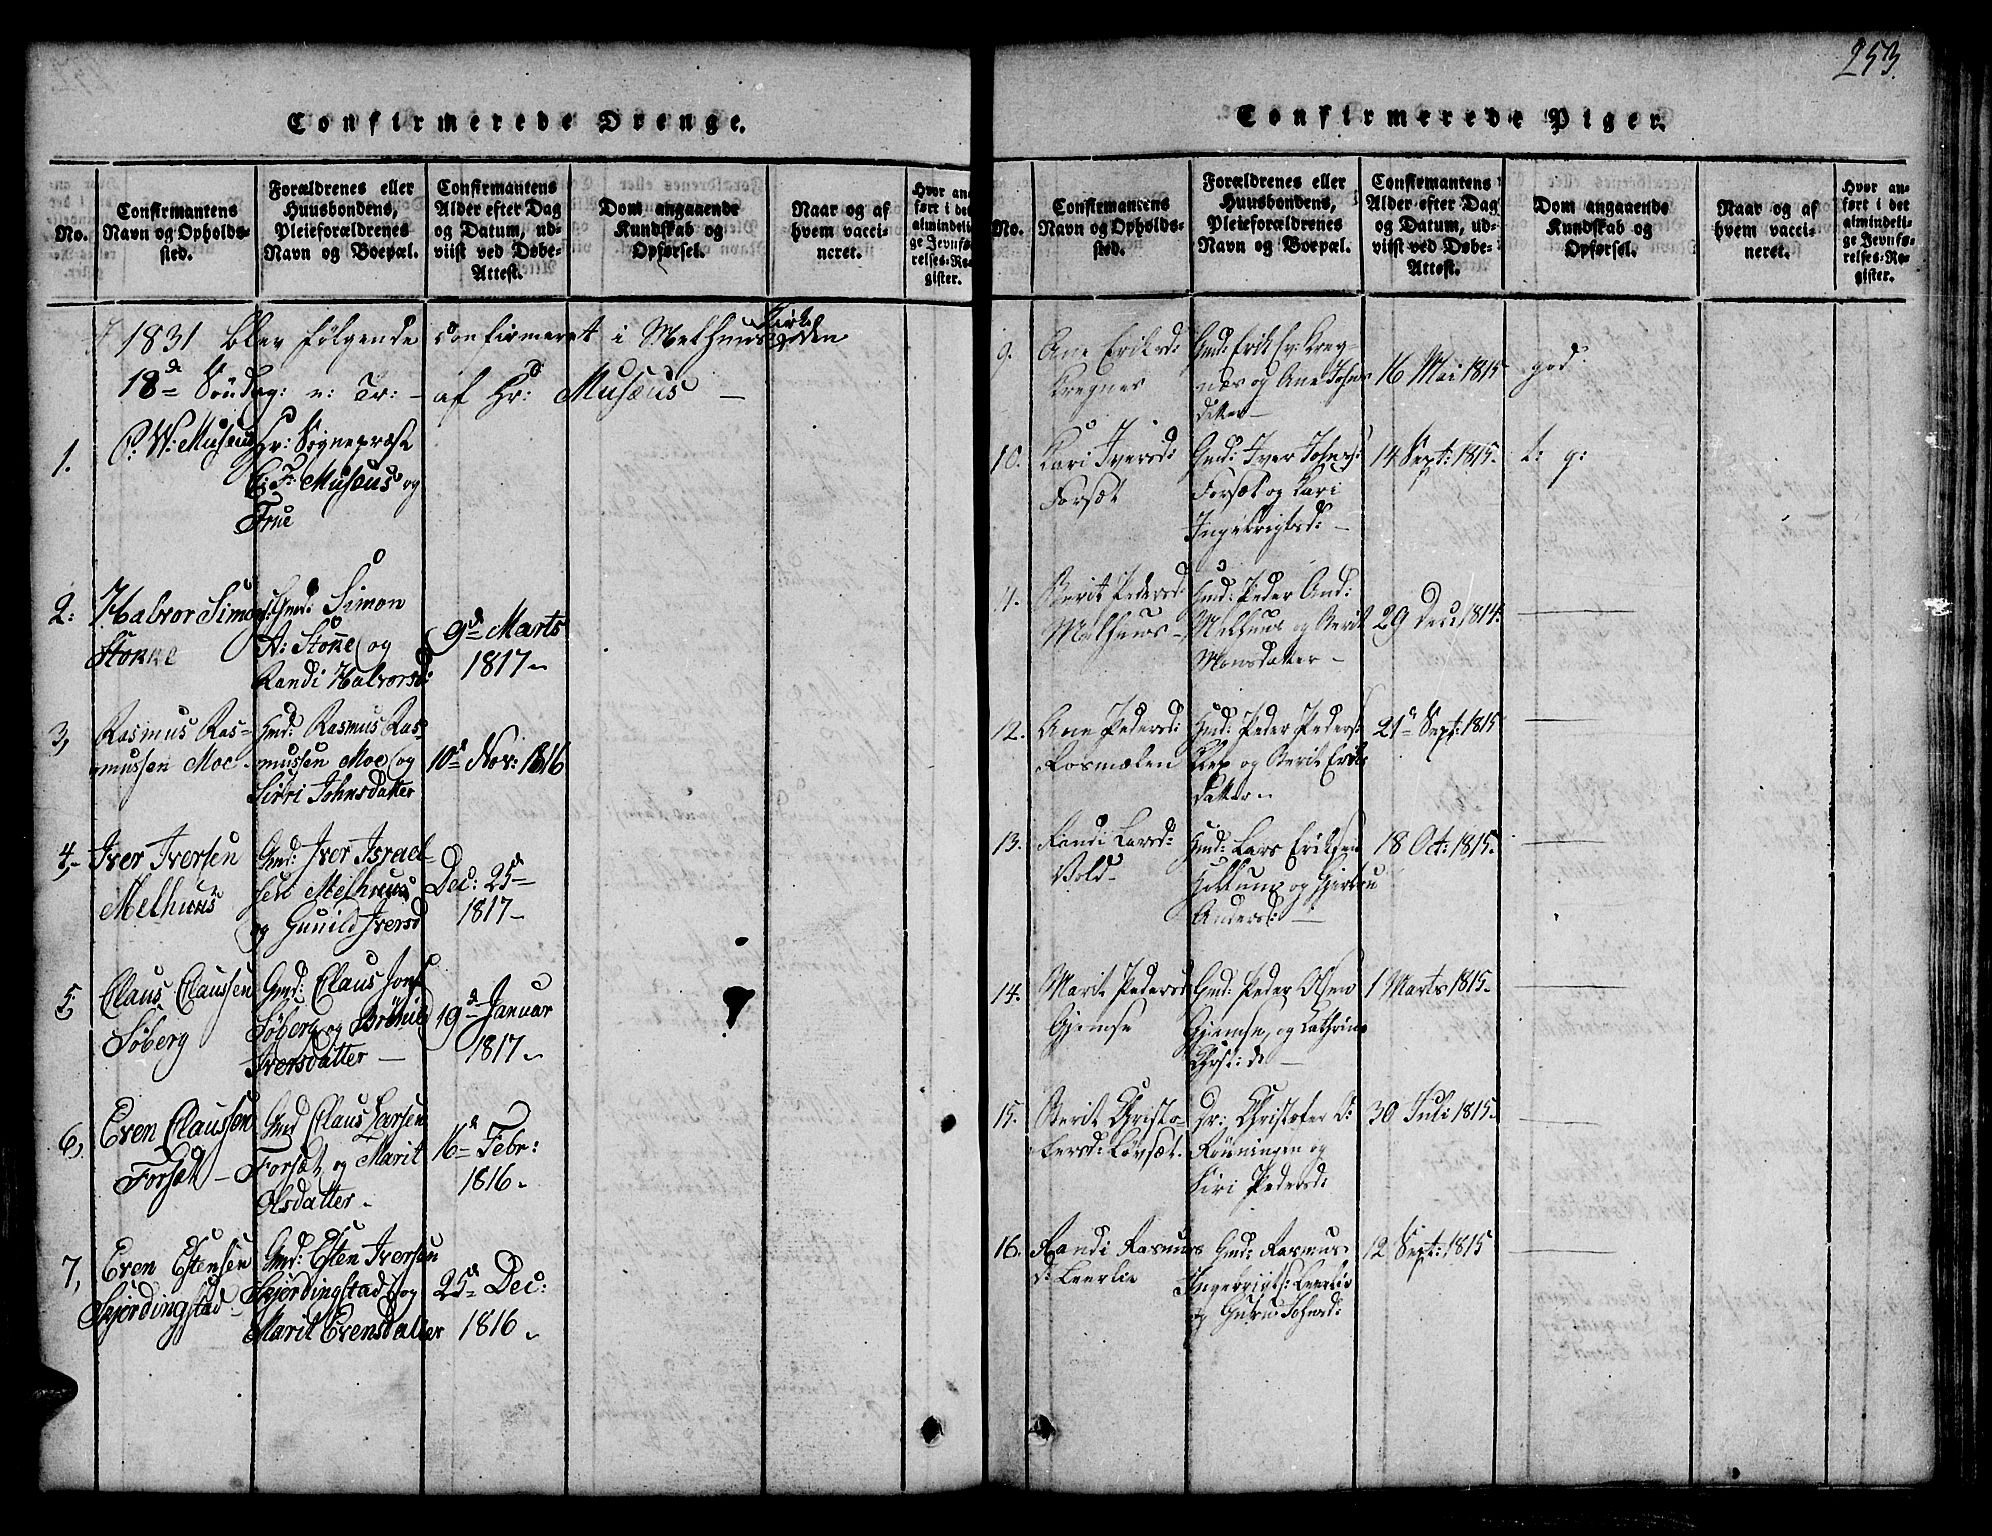 253.
Confirmerede Drenge.
No.
Confirmantens
Navn og Opholds-
sted.
Forældrenes eller
Huusbondens,
Pleieforældrenes
Navn og Boepæl.
Confirmantens
Alder efter Dag
og Datum, ud-
viist ved Døbe-
Attest.
Dom angaaende
Kundskab og
Opførsel.
Naar og af
hvem vacci-
neret.
Hvor an-
ført i det
almindeli-
ge Jevnfø-
relses-Re-
gister.
1831 blev følgende confirmeret i Melhuus Kirke den
18de Søndag: e: Tr: - af Hr: Musæus -
1.
P. W. Musæus
Hr: Sognepræst
C: F: Musæus og
Frue
2:
Halvor Simons:
Stokke
Gmd: Simon
A: Stokke og
Randi Halvorsd:
9de Marts
1817
3,
Rasmus Ras-
mussen Moe
Gmd: Rasmus Ras-
mussen Moe og
Sirri Johnsdatter
10de Nov: 1816
4,
Iver Iversen
Melhuus
Gmd: Iver Israel-
sen Melhuus
og Gunild Iversd
Dec: 25de
1817
5,
Claus Claussen
Søberg
Gmd: Claus Jons:
Søberg og
Iversdatter
19de Januar
1817
6,
Even Claussen
Forsæt
Gmd Claus Larsen
Forsæt og Marit
Olsdatter
16de Febr:
1816
7,
Even Estensen
Skjerdingstad
Gmd: Esten Iversen
Skjerdingstad og
Marit Evensdatter
25de Dec:
1816
Confirmerede Piger.
No.
Confirmantens
Navn og Opholds-
sted.
Forældrenes eller
Huusbondens,
Pleieforældrenes
Navn og Boepæl.
Confirmantens
Alder efter Dag
og Datum, ud-
viist ved Døbe-
Attest.
Dom angaaende
Kundskab og
Opførsel.
Naar og af
hvem vacci-
neret.
Hvor an-
ført i det
almindeli-
ge Jevnfø-
relses-Re-
gister.
9.
Ane Eriksd:
Kregnes
Gmd: Erik Kreg-
næs og Ane Johns
datter
16 Mai 1815
god
10.
Kari Iversd:
Forsæt
Gmd: Iver Johns:
Forsæt og Kari
Ingebrigtsd:
14 Sept: 1815.
t: g:
11.
Berit Pedersd:
Melhuus
Gmd: Peder And:
Melhuus og Berit
Monsdatter
29 Dec: 1814
12.
Ane Pedersd:
Rosmælen
Gmd: Peder Peders:
og Berit Eriks
datter
21de Sept: 1815
13.
Randi Larsd:
Vold
Gmd: Lars Eriksen
og
Andersd:
18 Oct: 1815.
14.
Marit Pedersd
Gjemse
Gmd: Peder Olsen
Gjemse, og Cathrina
1 Marts 1815.
15.
Berit Christo-
fersd: Løvsæt.
Christofer
Rønningen og
Siri Pedersd:
30 Juli 1815.
16.
Randi Rasmus
d: Leerlie
Gmd: Rasmus
Ingebrigts: Leerlie
og Guru Johnsd:
12 Sept: 1815